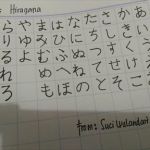 Hiragana
あいうえお
かきくけこ
さしすせそ
たちつてと
なにぬねの
はひふへほ
まみむめも
やゆよ
らりるれろ
from: Suci Wulandari